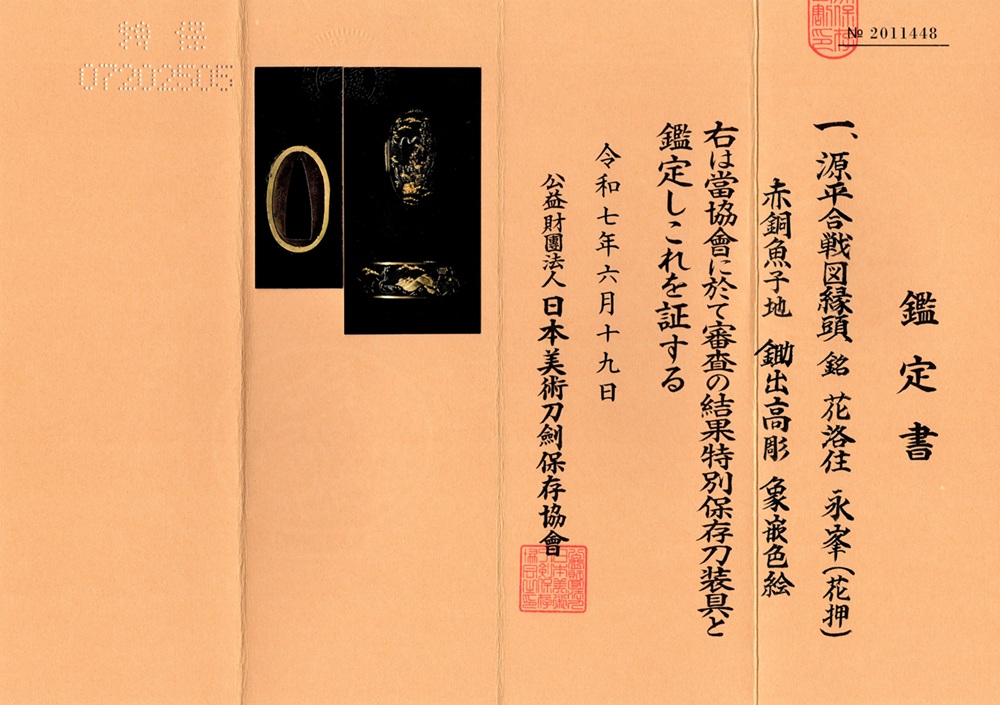 № 2011448
鑑定書
一、源平合戦図縁頭 銘 花洛住 永峯(花押)
赤銅魚子地 鋤出高彫 象嵌色絵
右は當協會に於て審査の結果特別保存刀装具と
鑑定しこれを証する
令和七年六月十九日
公益財團法人 日本美術刀劍保存協會
特保
07202505